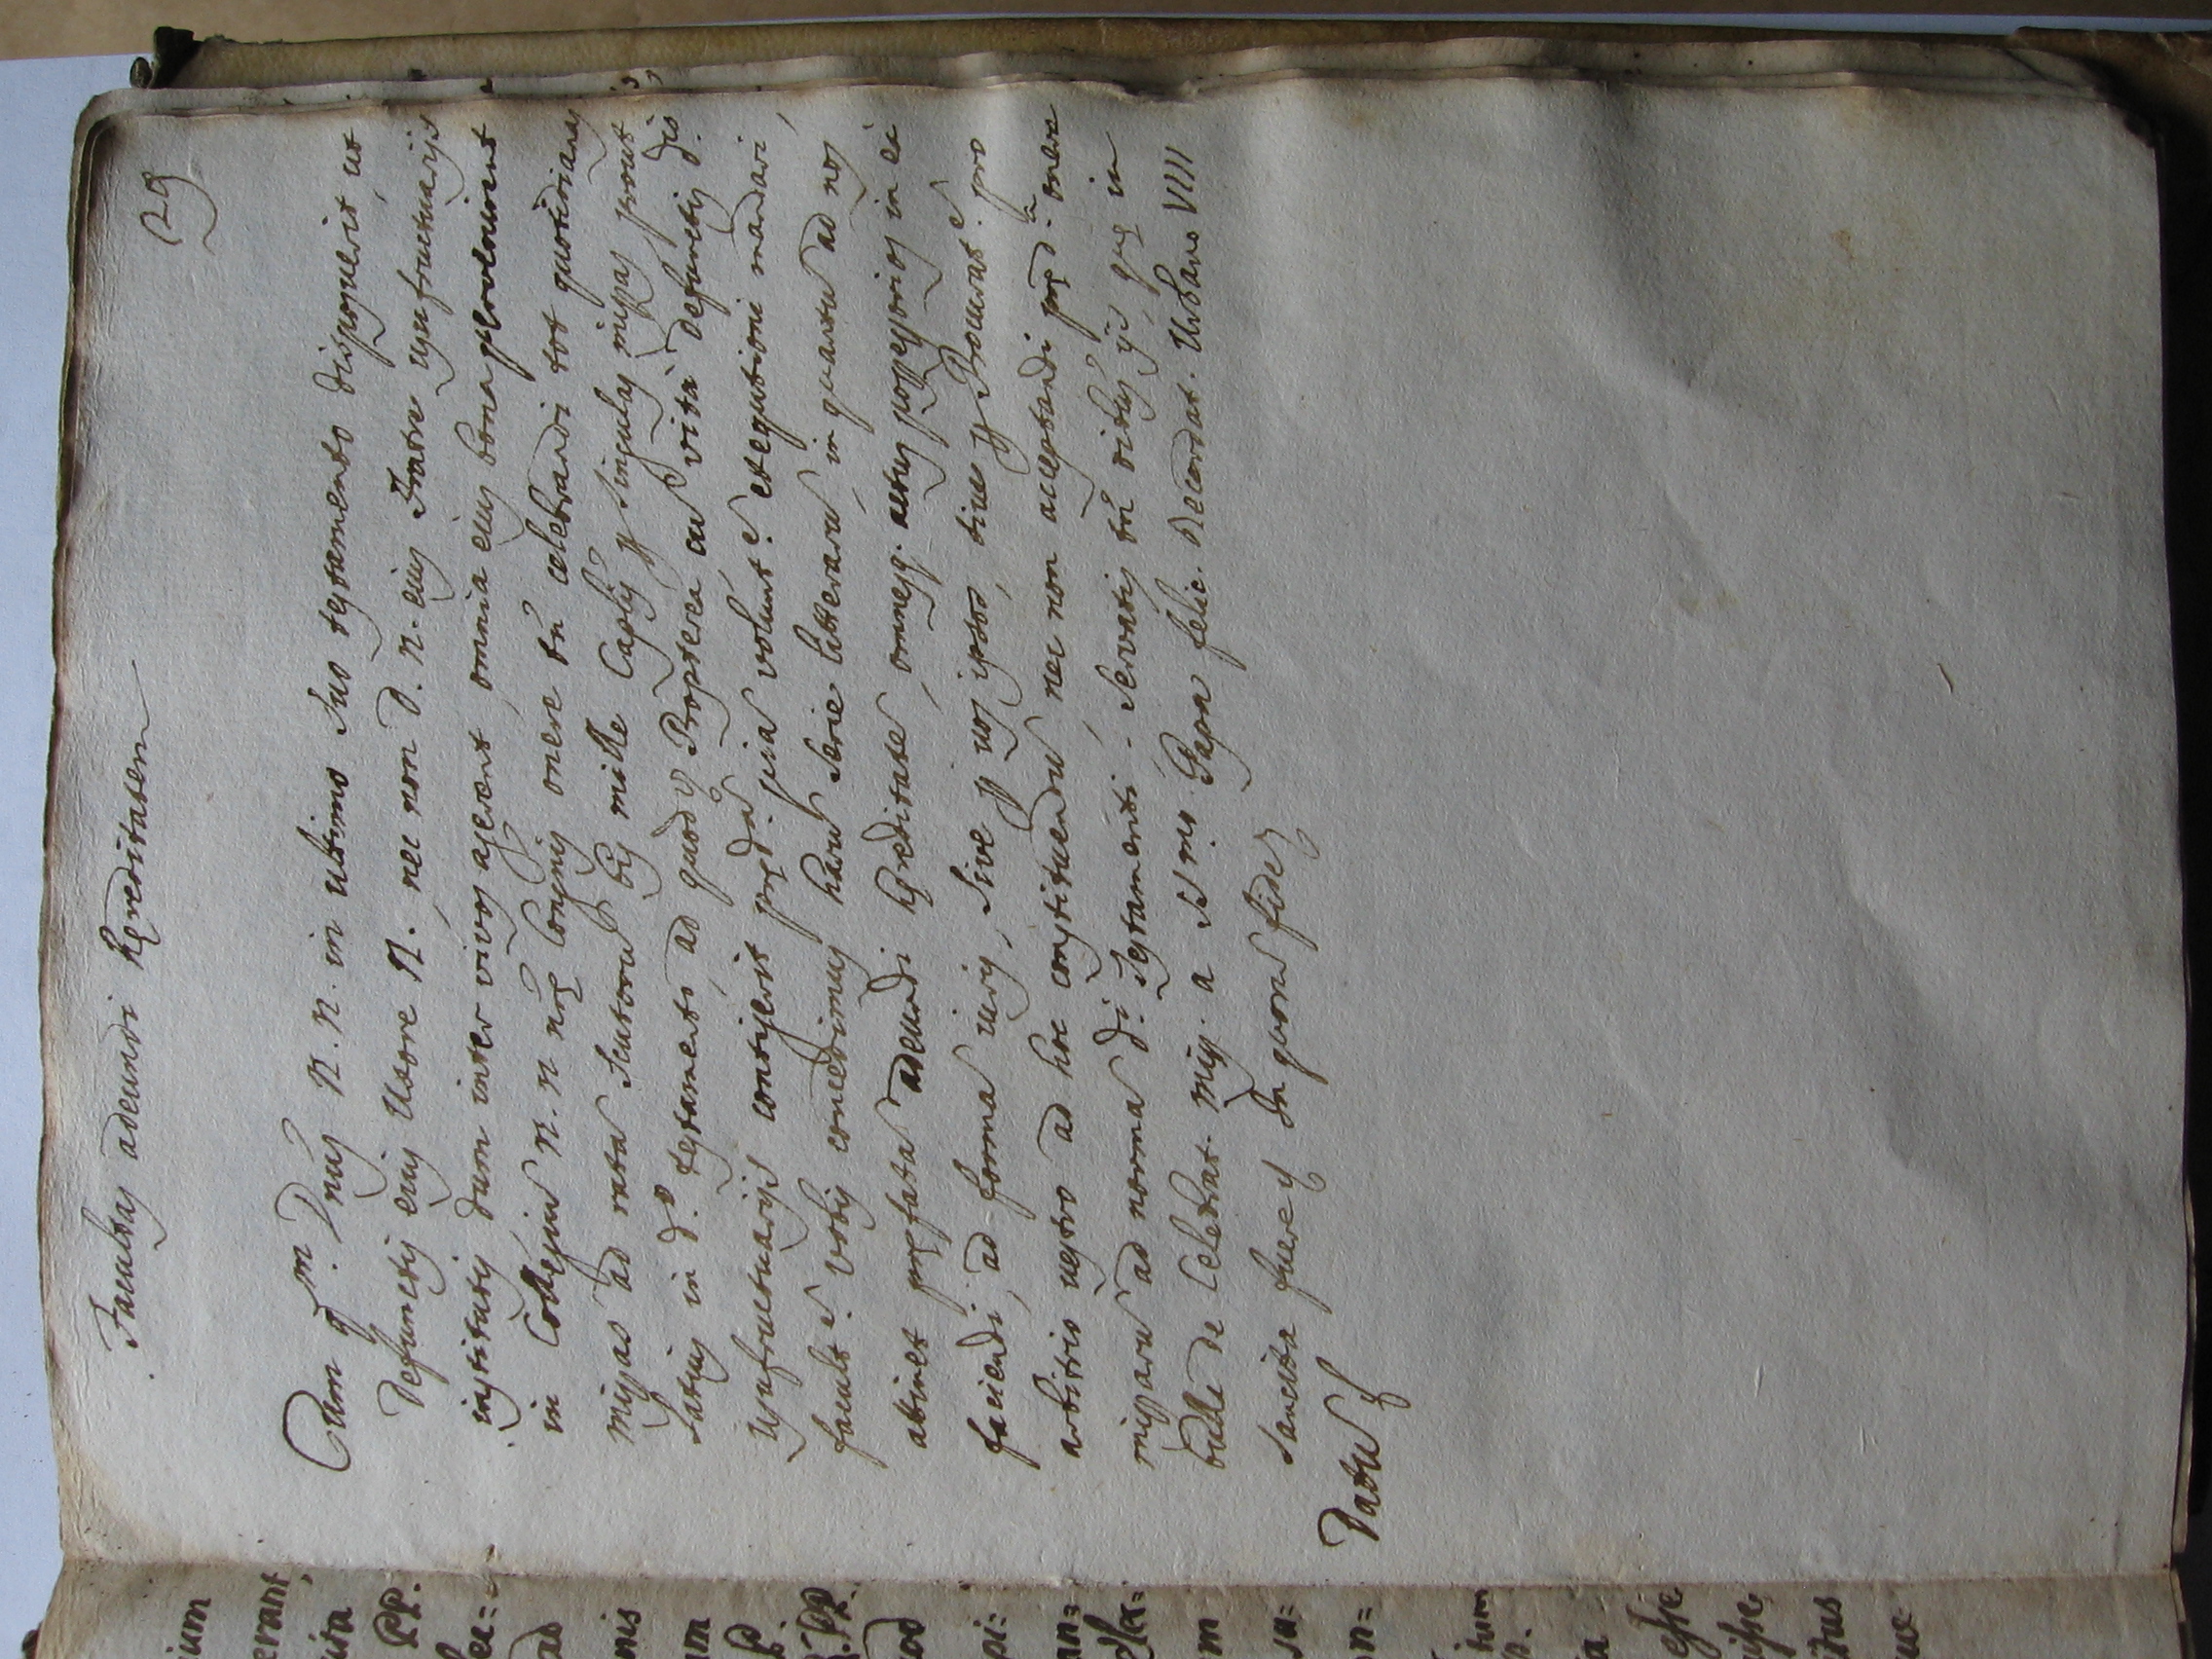 29
Facultas adeundi hęreditatem
Cum q.m Dnus N. N. in ultimo suo testamento disposuerit, ut
Defunctis eius Uxore N. nec non D. N. eius Fratre usufructuarijs
institutis dum inter vivos agerent, omnia eius bona pervenirent
in Collegiū N. N. nrę Congnis onere tñ celebrandi tot quotidianas
missas ad ratā scutorū bis mille Caplis pro singulas missas prout
latius in d.o testamento, ad quod &c. Propterea cū vitā defunctis d.is
usufructuarijs contigerit pręd.ā piā volunt.e executioni mandari,
facult.e vobis concedimus harū serie litterarū, in quantū ad nos
attinet pręfatā adeundi hęreditatē, omnesq. actus possessorios in eā
faciendi, ad formā iuris, sive per vos ipsos, sive per Procurat.e pro
arbitrio vestro ad hoc constituendū nec non acceptandi pręd.a onera
missarū ad normā d.i Testamenti, servatis tñ oibus ijs, quę in
bulla de Celebrat. miss. a SS.mo Papa felic. Recordat. Urbano VIII
sancita fuere &c. In quorū fidē &c.
Datū &c.
ium
erant,
PP.
ad
onis
am
P.
PP.
uod
pi:
an=
m
sa=
on=
tum
esse
uisse,